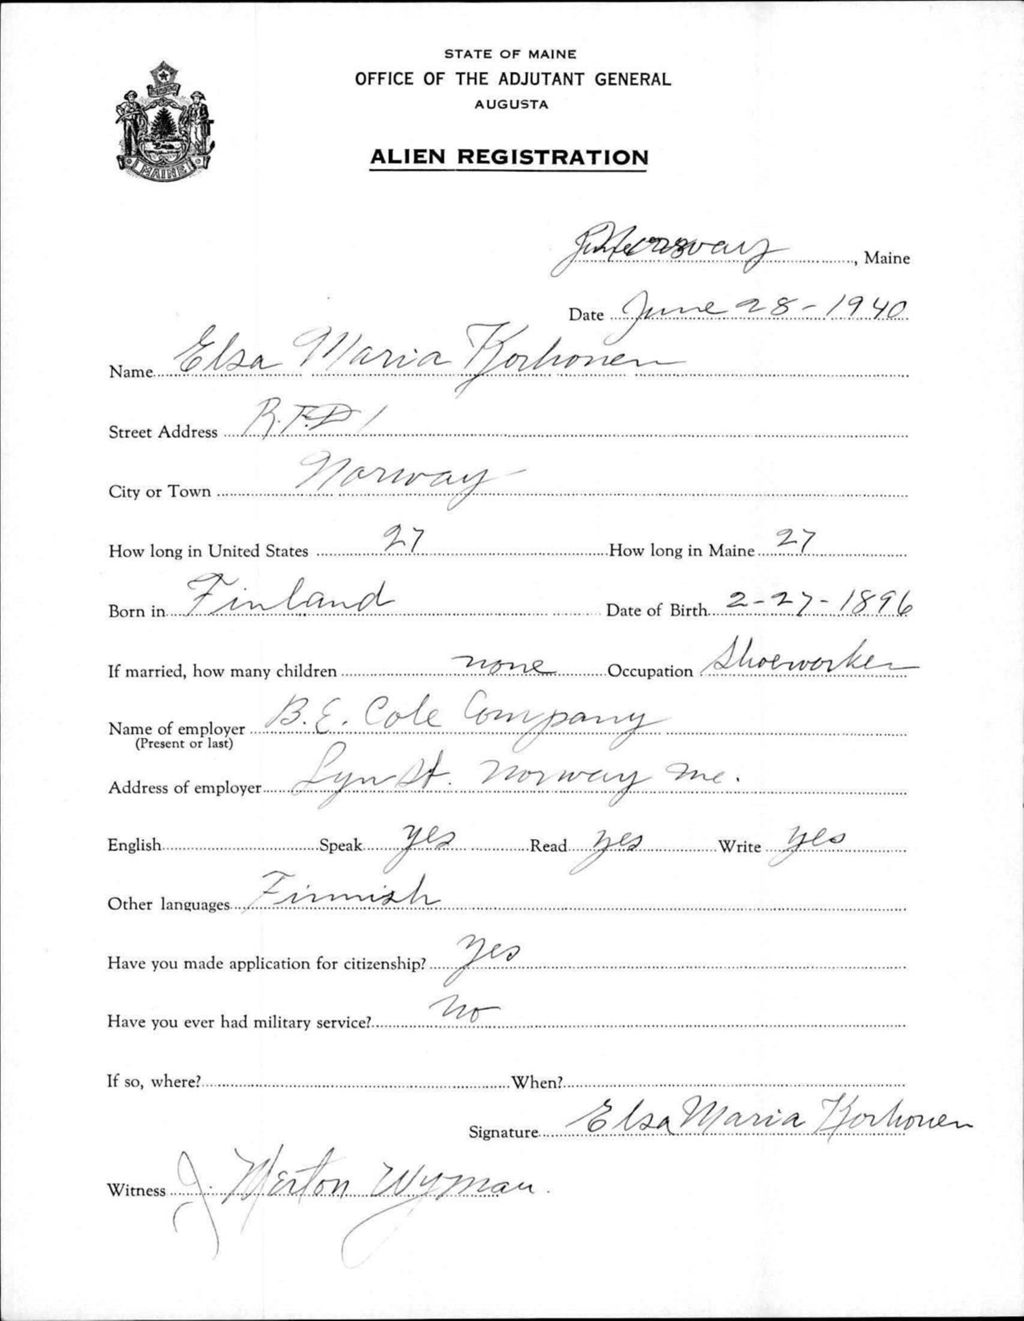 STATE OF MAINE
OFFICE OF THE ADJUTANT GENERAL
AUGUSTA
ALIEN REGISTRATION
MAINE
Norway, Maine
Date June 28-1940
Name Elsa Maria Korhonen
Street Address R.F.D 1
City or Town Norway
How long in United States 27 How long in Maine 27
Born in Finland Date of Birth 2-27-1896
If married, how many children none Occupation Shoeworker
Name of employer B.E. Cole Company
(Present or last)
Address of employer Lyn St. Norway Me.
English Speak yes Read yes Write yes
Other languages Finnish
Have you made application for citizenship? Yes
Have you ever had military service? No
If so, where? When?
Signature Elsa Maria Korhonen
Witness J. Merton Wyman.